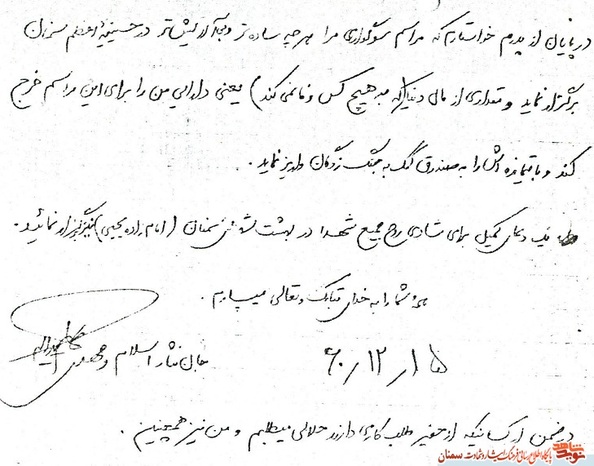 در پایان از پدرم خواستارم که مراسم سوگواری مرا هر چه ساده تر و بی آلایش تر در حسینیه اعظم سمنان
برگزار نماید و مقداری از مال دنیا (که به هیچ کس وفا نمی کند) یعنی دارایی من را برای این مراسم خرج
کند و باقیمانده اش را به صندوق کمک به جنگ زدگان واریز نماید.
یک دعای کمیل برای شادی روح جمیع شهدا در بهشت سمنان (امام زاده یحیی) نیز برگزار نمائید.
همه شما را به خدای تبارک و تعالی میسپارم.
جان نثار اسلام و
۶۰/۱۲/۱۵
در ضمن از کسانیکه از حقیر طلب کاری دارند حلالی میطلبم و من نیز همچنین.
نوید شاهد
پایگاه اطلاع رسانی فرهنگ ایثار و شهادت سمنان